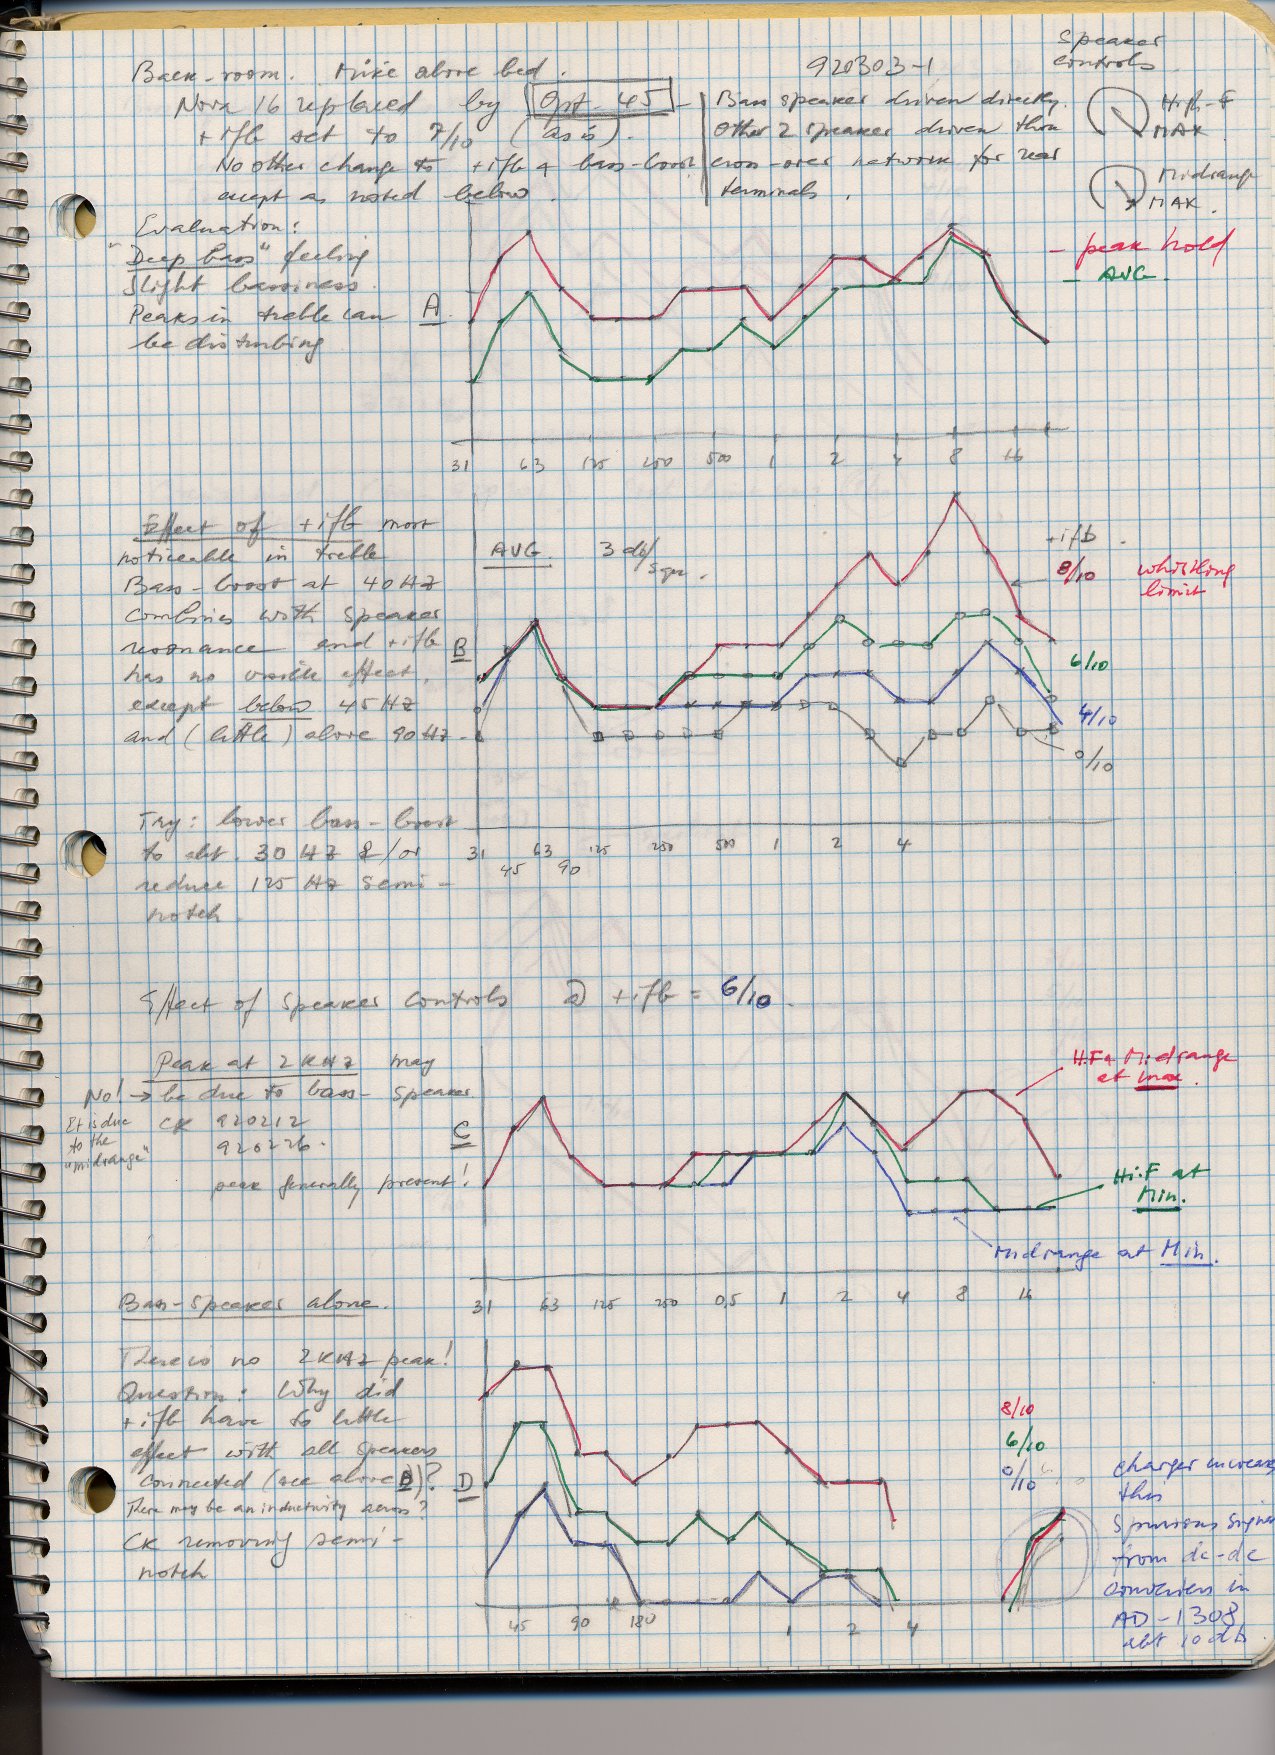 Back-room. Mike above bed.
920303-1
Speaker
controls
Nova 16 replaced by Opt. 45
+ifb set to 7/10 (as is).
No other change to +ifb & bass-boost
except as noted below.
Bass speaker driven directly.
Other 2 speaker driven thru
cross-over network for rear
terminals.
High-F
MAX
Midrange
MAX.
Evaluation:
"Deep bass" feeling
Slight bassiness.
Peaks in treble can
be disturbing
A
- peak hold
- AVG.
31 63 125 250 500 1 2 4 8 16
Effect of +ifb most
noticeable in treble
Bass-boost at 40 HZ
combines with speaker
resonance and +ifb
has no visible effect,
except below 45 HZ
and (little) above 90 HZ.
B
AVG. 3 db/
sqr.
+ifb
8/10 whistling
limit
6/10
4/10
0/10
31 63 125 250 500 1 2 4
45 90
Try: lower bass-boost
to abt. 30 HZ &/or
reduce 125 HZ semi-
notch.
Effect of speaker controls @ +ifb = 6/10.
Peak at 2 KHZ may
No! → be due to bass-speaker
CK 920212
920226.
peak generally present!
It is due
to the
"midrange"
C
Hi.F & Midrange
at max.
Hi.F at
Min.
Midrange at Min.
31 63 125 250 0.5 1 2 4 8 16
Bass-speaker alone.
There is no 2KHZ peak!
Question: Why did
+ifb have so little
effect with all speakers
connected (see above B)?
There may be an inductivity across?
CK removing semi-
notch
D
8/10
6/10
0/10
charger increases
this
spurious signal
from dc-dc
converters in
AD-1308
abt 10 db.
45 90 180 1 2 4